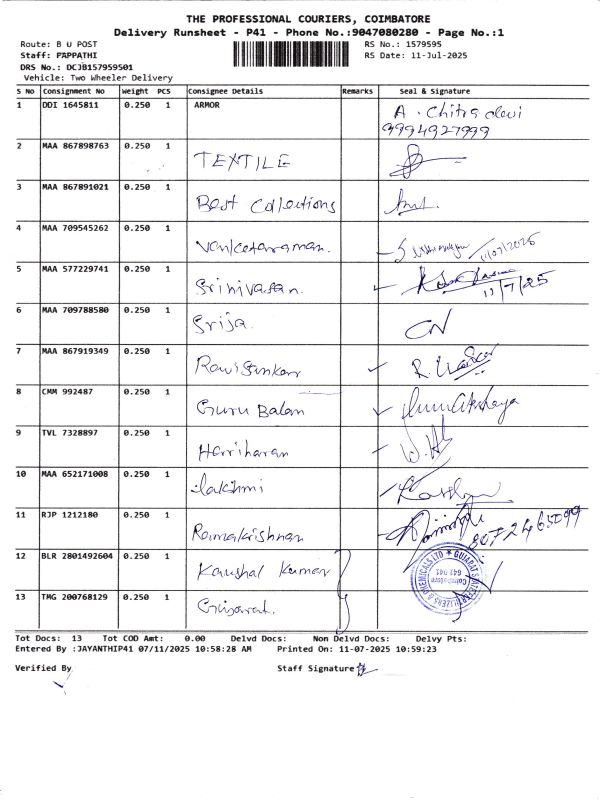 THE PROFESSIONAL COURIERS, COIMBATORE
Delivery Runsheet - P41 - Phone No.:9047080280 - Page No.:1
Route: B U POST RS No.: 1579595
Staff: PAPPATHI RS Date: 11-Jul-2025
DRS No.: DCJB157959501
Vehicle: Two Wheeler Delivery
S No Consignment No Weight PCS Consignee Details Remarks Seal & Signature
1 DDI 1645811 0.250 1 ARMOR A. Chitra devi
9994927999
2 MAA 867898763 0.250 1 TEXTILE
3 MAA 867891021 0.250 1 Best Collections
4 MAA 709545262 0.250 1 Venketaraman. 11/07/2025
5 MAA 577229741 0.250 1 Srinivasan. 11/7/25
6 MAA 709788580 0.250 1 Srija. CN
7 MAA 867919349 0.250 1 Ravisankar
8 CMM 992487 0.250 1 Guru Balan
9 TVL 7328897 0.250 1 Harriharan
10 MAA 652171008 0.250 1 Lakshmi
11 RJP 1212180 0.250 1 Ramakrishnan
12 BLR 2801492604 0.250 1 Kaushal Kumar
13 TMG 200768129 0.250 1 Gujarat.
Coimbatore
641 041
Tot Docs: 13 Tot COD Amt: 0.00 Delvd Docs: Non Delvd Docs: Delvy Pts:
Entered By :JAYANTHIP41 07/11/2025 10:58:28 AM Printed On: 11-07-2025 10:59:23
Verified By Staff Signature